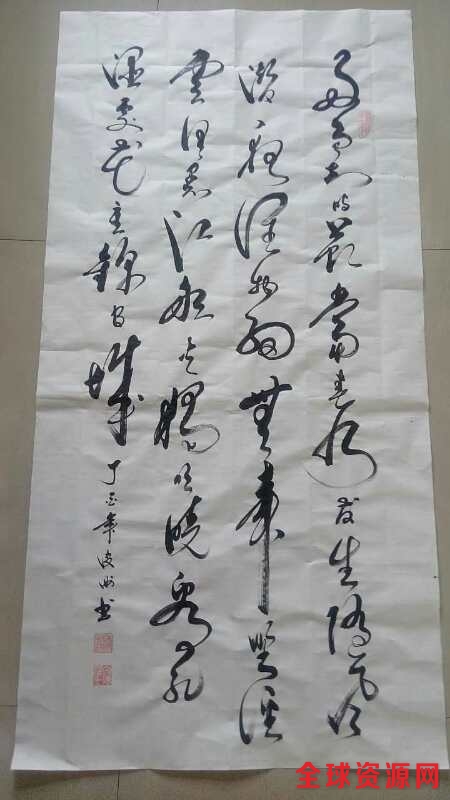 好雨知时節當春乃发生随风
潜入夜润物细無声野径
雲俱黑江船火獨明曉看红
湿處花重錦官城
丁酉年 书
全球资源网